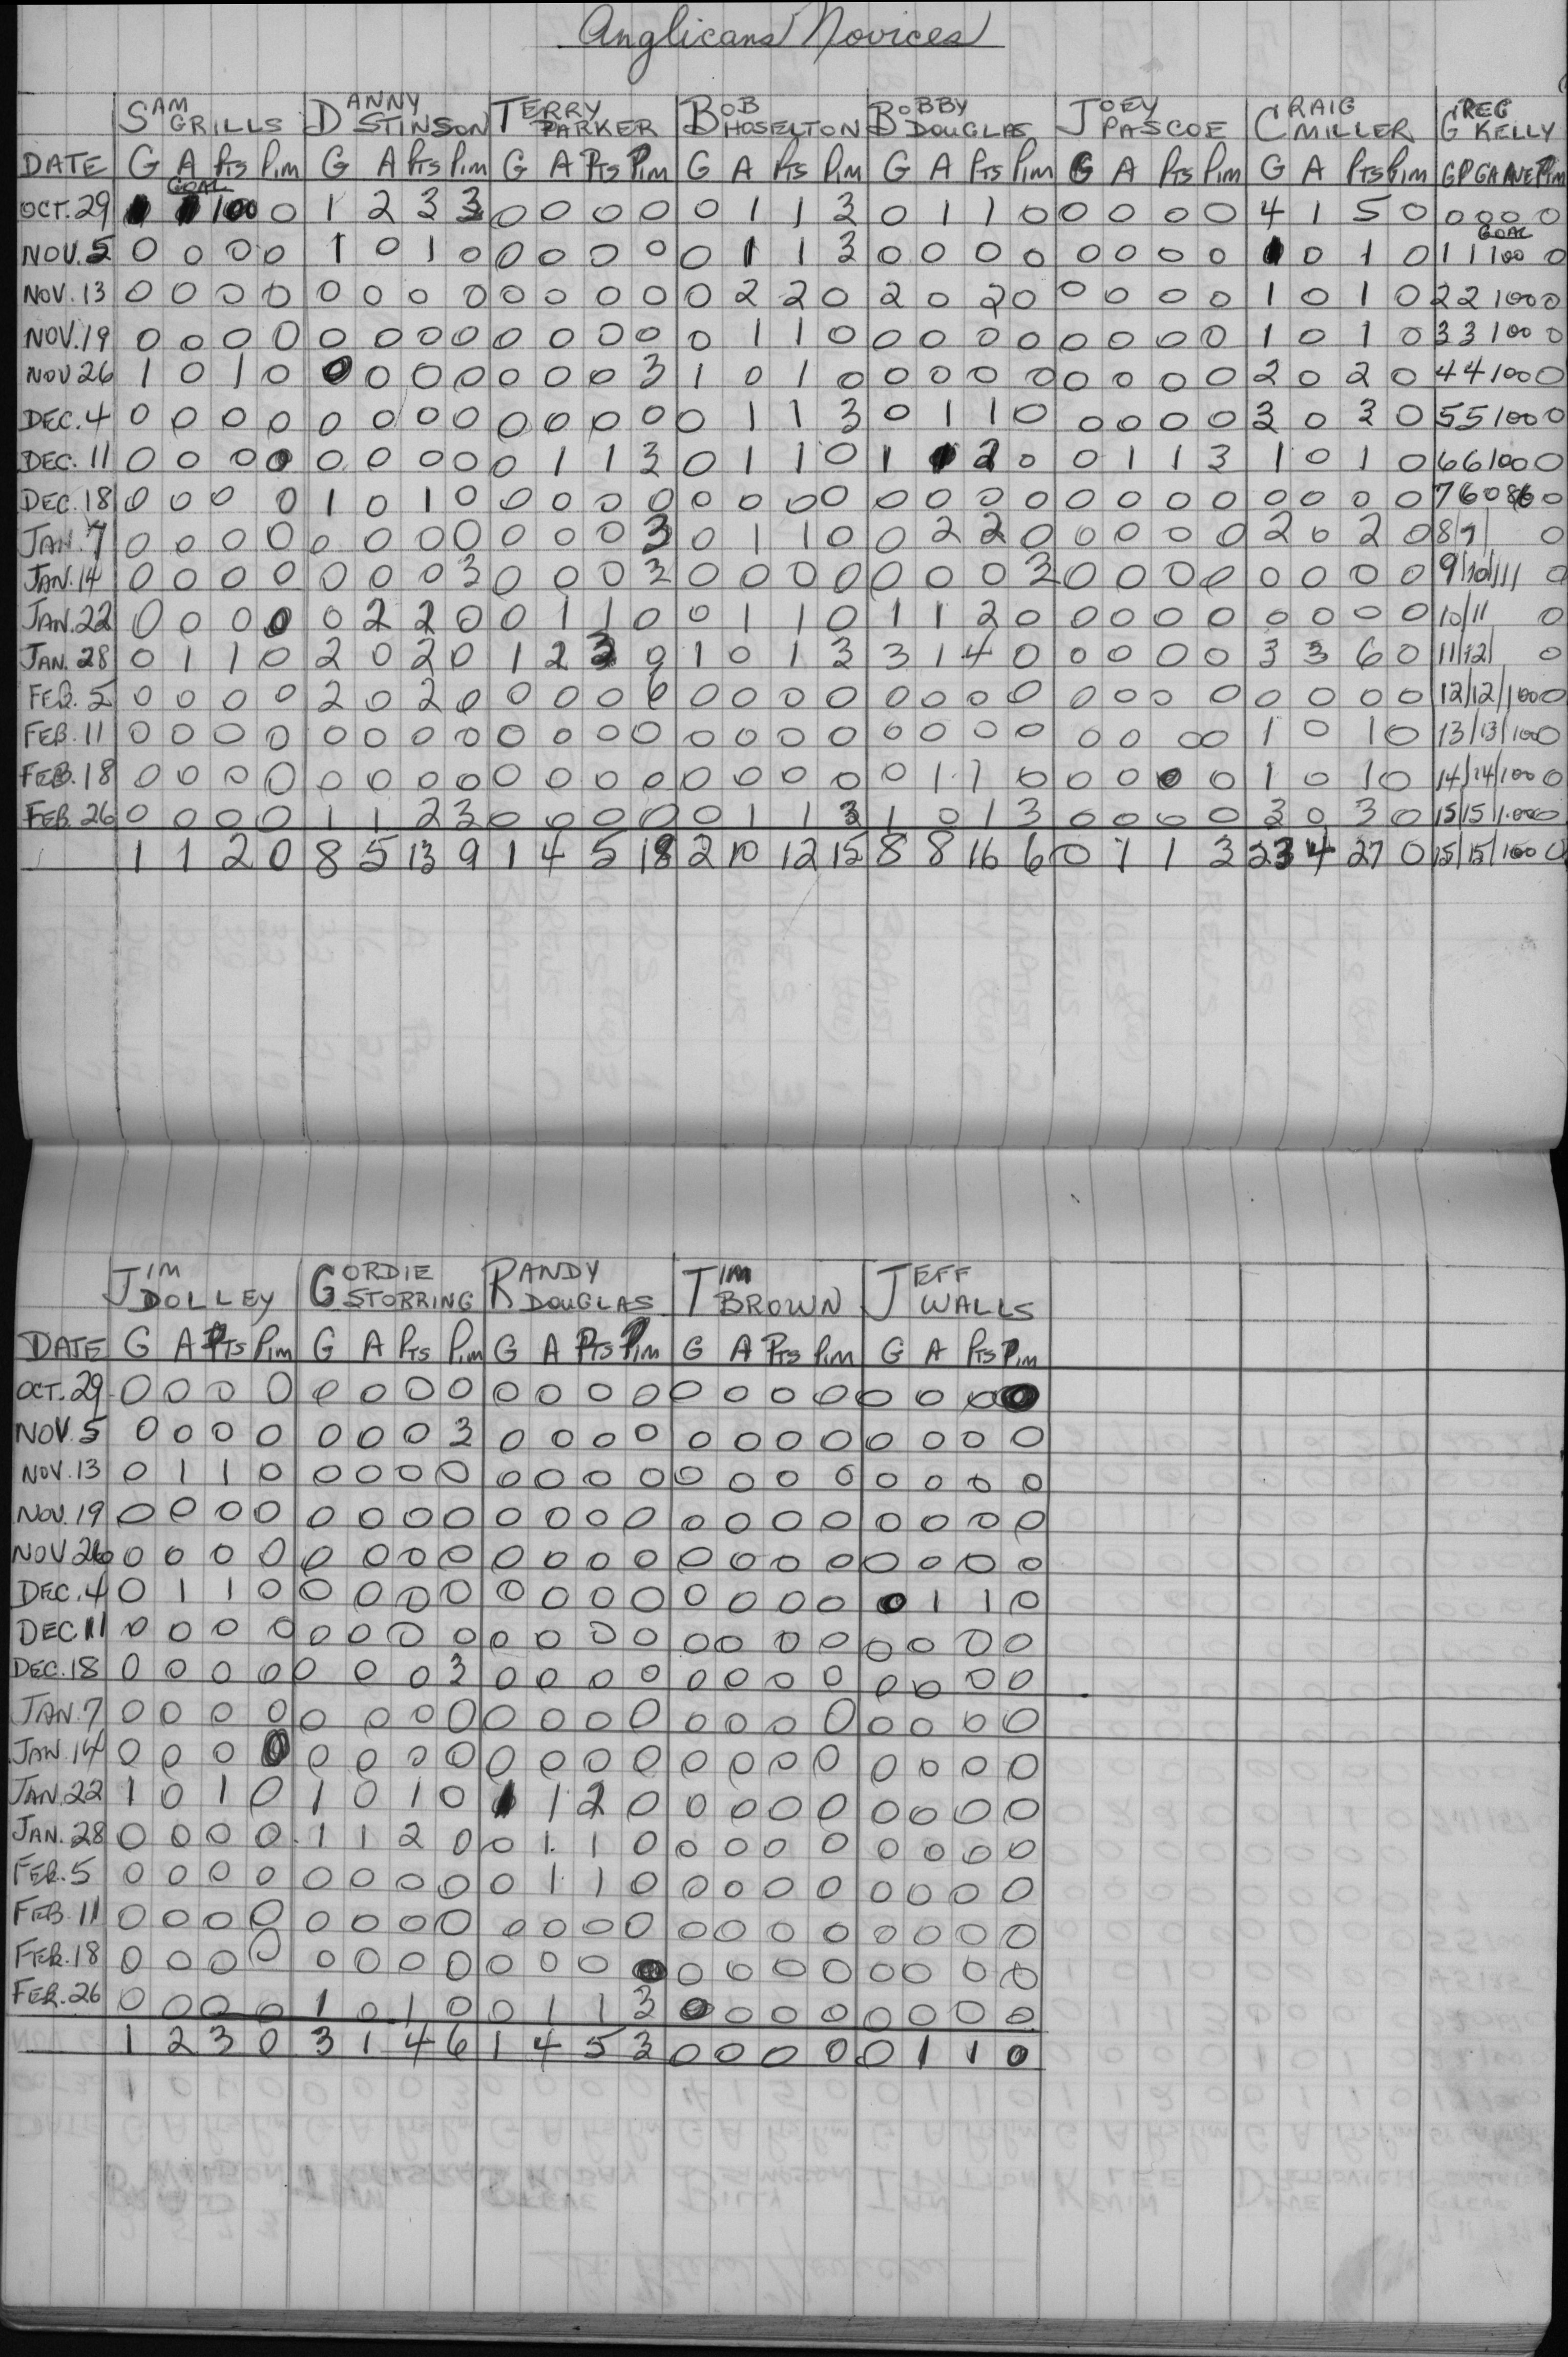 Anglicans Novices
SAM GRILLS DANNY STINSON TERRY PARKER BOB HOSELTON BOBBY DOUGLAS JOEY PASCOE CRAIG MILLER GREG KELLY
DATE G A Pts Pim G A Pts Pim G A Pts Pim G A Pts Pim G A Pts Pim G A Pts Pim G A Pts Pim GP GA AVE Pim
OCT. 29 1 GOAL 1 100 0 1 2 3 3 0 0 0 0 0 1 1 3 0 1 1 0 0 0 0 0 4 1 5 0 0 0 0 0
NOV. 5 0 0 0 0 1 0 1 0 0 0 0 0 0 1 1 3 0 0 0 0 0 0 0 0 1 0 1 0 1 1 GOAL 100 0
NOV. 13 0 0 0 0 0 0 0 0 0 0 0 0 0 2 2 0 2 0 2 0 0 0 0 0 1 0 1 0 2 2 100 0
NOV. 19 0 0 0 0 0 0 0 0 0 0 0 0 0 1 1 0 0 0 0 0 0 0 0 0 1 0 1 0 3 3 100 0
NOV 26 1 0 1 0 0 0 0 0 0 0 0 3 1 0 1 0 0 0 0 0 0 0 0 0 2 0 2 0 4 4 100 0
DEC. 4 0 0 0 0 0 0 0 0 0 0 0 0 0 1 1 3 0 1 1 0 0 0 0 0 3 0 3 0 5 5 100 0
DEC. 11 0 0 0 0 0 0 0 0 0 1 1 3 0 1 1 0 1 1 2 0 0 1 1 3 1 0 1 0 6 6 100 0
DEC. 18 0 0 0 0 1 0 1 0 0 0 0 0 0 0 0 0 0 0 0 0 0 0 0 0 0 0 0 0 7 6 086 0
JAN. 7 0 0 0 0 0 0 0 0 0 0 0 3 0 1 1 0 0 2 2 0 0 0 0 0 2 0 2 0 8 9/ 0
JAN. 14 0 0 0 0 0 0 0 3 0 0 0 3 0 0 0 0 0 0 0 3 0 0 0 0 0 0 0 0 9/10/111 0
JAN. 22 0 0 0 0 0 2 2 0 0 1 1 0 0 1 1 0 1 1 2 0 0 0 0 0 0 0 0 0 10/11 0
JAN. 28 0 1 1 0 2 0 2 0 1 2 3 9 1 0 1 3 3 1 4 0 0 0 0 0 3 3 6 0 11/12/ 0
FEB. 5 0 0 0 0 2 0 2 0 0 0 0 6 0 0 0 0 0 0 0 0 0 0 0 0 0 0 0 0 12/12/100 0
FEB. 11 0 0 0 0 0 0 0 0 0 0 0 0 0 0 0 0 0 0 0 0 0 0 0 0 1 0 1 0 13/13/100 0
FEB. 18 0 0 0 0 0 0 0 0 0 0 0 0 0 0 0 0 0 1 1 0 0 0 0 0 1 0 1 0 14/14/100 0
FEB. 26 0 0 0 0 1 1 2 3 0 0 0 0 0 1 1 3 1 0 1 3 0 0 0 0 3 0 3 0 15/15/1.00 0
1 1 2 0 8 5 13 9 1 4 5 18 2 10 12 15 8 8 16 6 0 1 1 3 23 4 27 0 15/15/100 0
JIM DOLLEY GORDIE STORRING RANDY DOUGLAS TIM BROWN JEFF WALLS
DATE G A Pts Pim G A Pts Pim G A Pts Pim G A Pts Pim G A Pts Pim
OCT. 29 0 0 0 0 0 0 0 0 0 0 0 0 0 0 0 0 0 0 0 0
NOV. 5 0 0 0 0 0 0 0 3 0 0 0 0 0 0 0 0 0 0 0 0
NOV. 13 0 1 1 0 0 0 0 0 0 0 0 0 0 0 0 0 0 0 0 0
NOV. 19 0 0 0 0 0 0 0 0 0 0 0 0 0 0 0 0 0 0 0 0
NOV 26 0 0 0 0 0 0 0 0 0 0 0 0 0 0 0 0 0 0 0 0
DEC. 4 0 1 1 0 0 0 0 0 0 0 0 0 0 0 0 0 0 1 1 0
DEC 11 0 0 0 0 0 0 0 0 0 0 0 0 0 0 0 0 0 0 0 0
DEC. 18 0 0 0 0 0 0 0 3 0 0 0 0 0 0 0 0 0 0 0 0
JAN. 7 0 0 0 0 0 0 0 0 0 0 0 0 0 0 0 0 0 0 0 0
JAN. 14 0 0 0 0 0 0 0 0 0 0 0 0 0 0 0 0 0 0 0 0
JAN. 22 1 0 1 0 1 0 1 0 1 1 2 0 0 0 0 0 0 0 0 0
JAN. 28 0 0 0 0 1 1 2 0 0 1 1 0 0 0 0 0 0 0 0 0
FEB. 5 0 0 0 0 0 0 0 0 0 1 1 0 0 0 0 0 0 0 0 0
FEB. 11 0 0 0 0 0 0 0 0 0 0 0 0 0 0 0 0 0 0 0 0
FEB. 18 0 0 0 0 0 0 0 0 0 0 0 0 0 0 0 0 0 0 0 0
FEB. 26 0 0 0 0 1 0 1 0 0 1 1 3 0 0 0 0 0 0 0 0
1 2 3 0 3 1 4 6 1 4 5 3 0 0 0 0 0 1 1 0